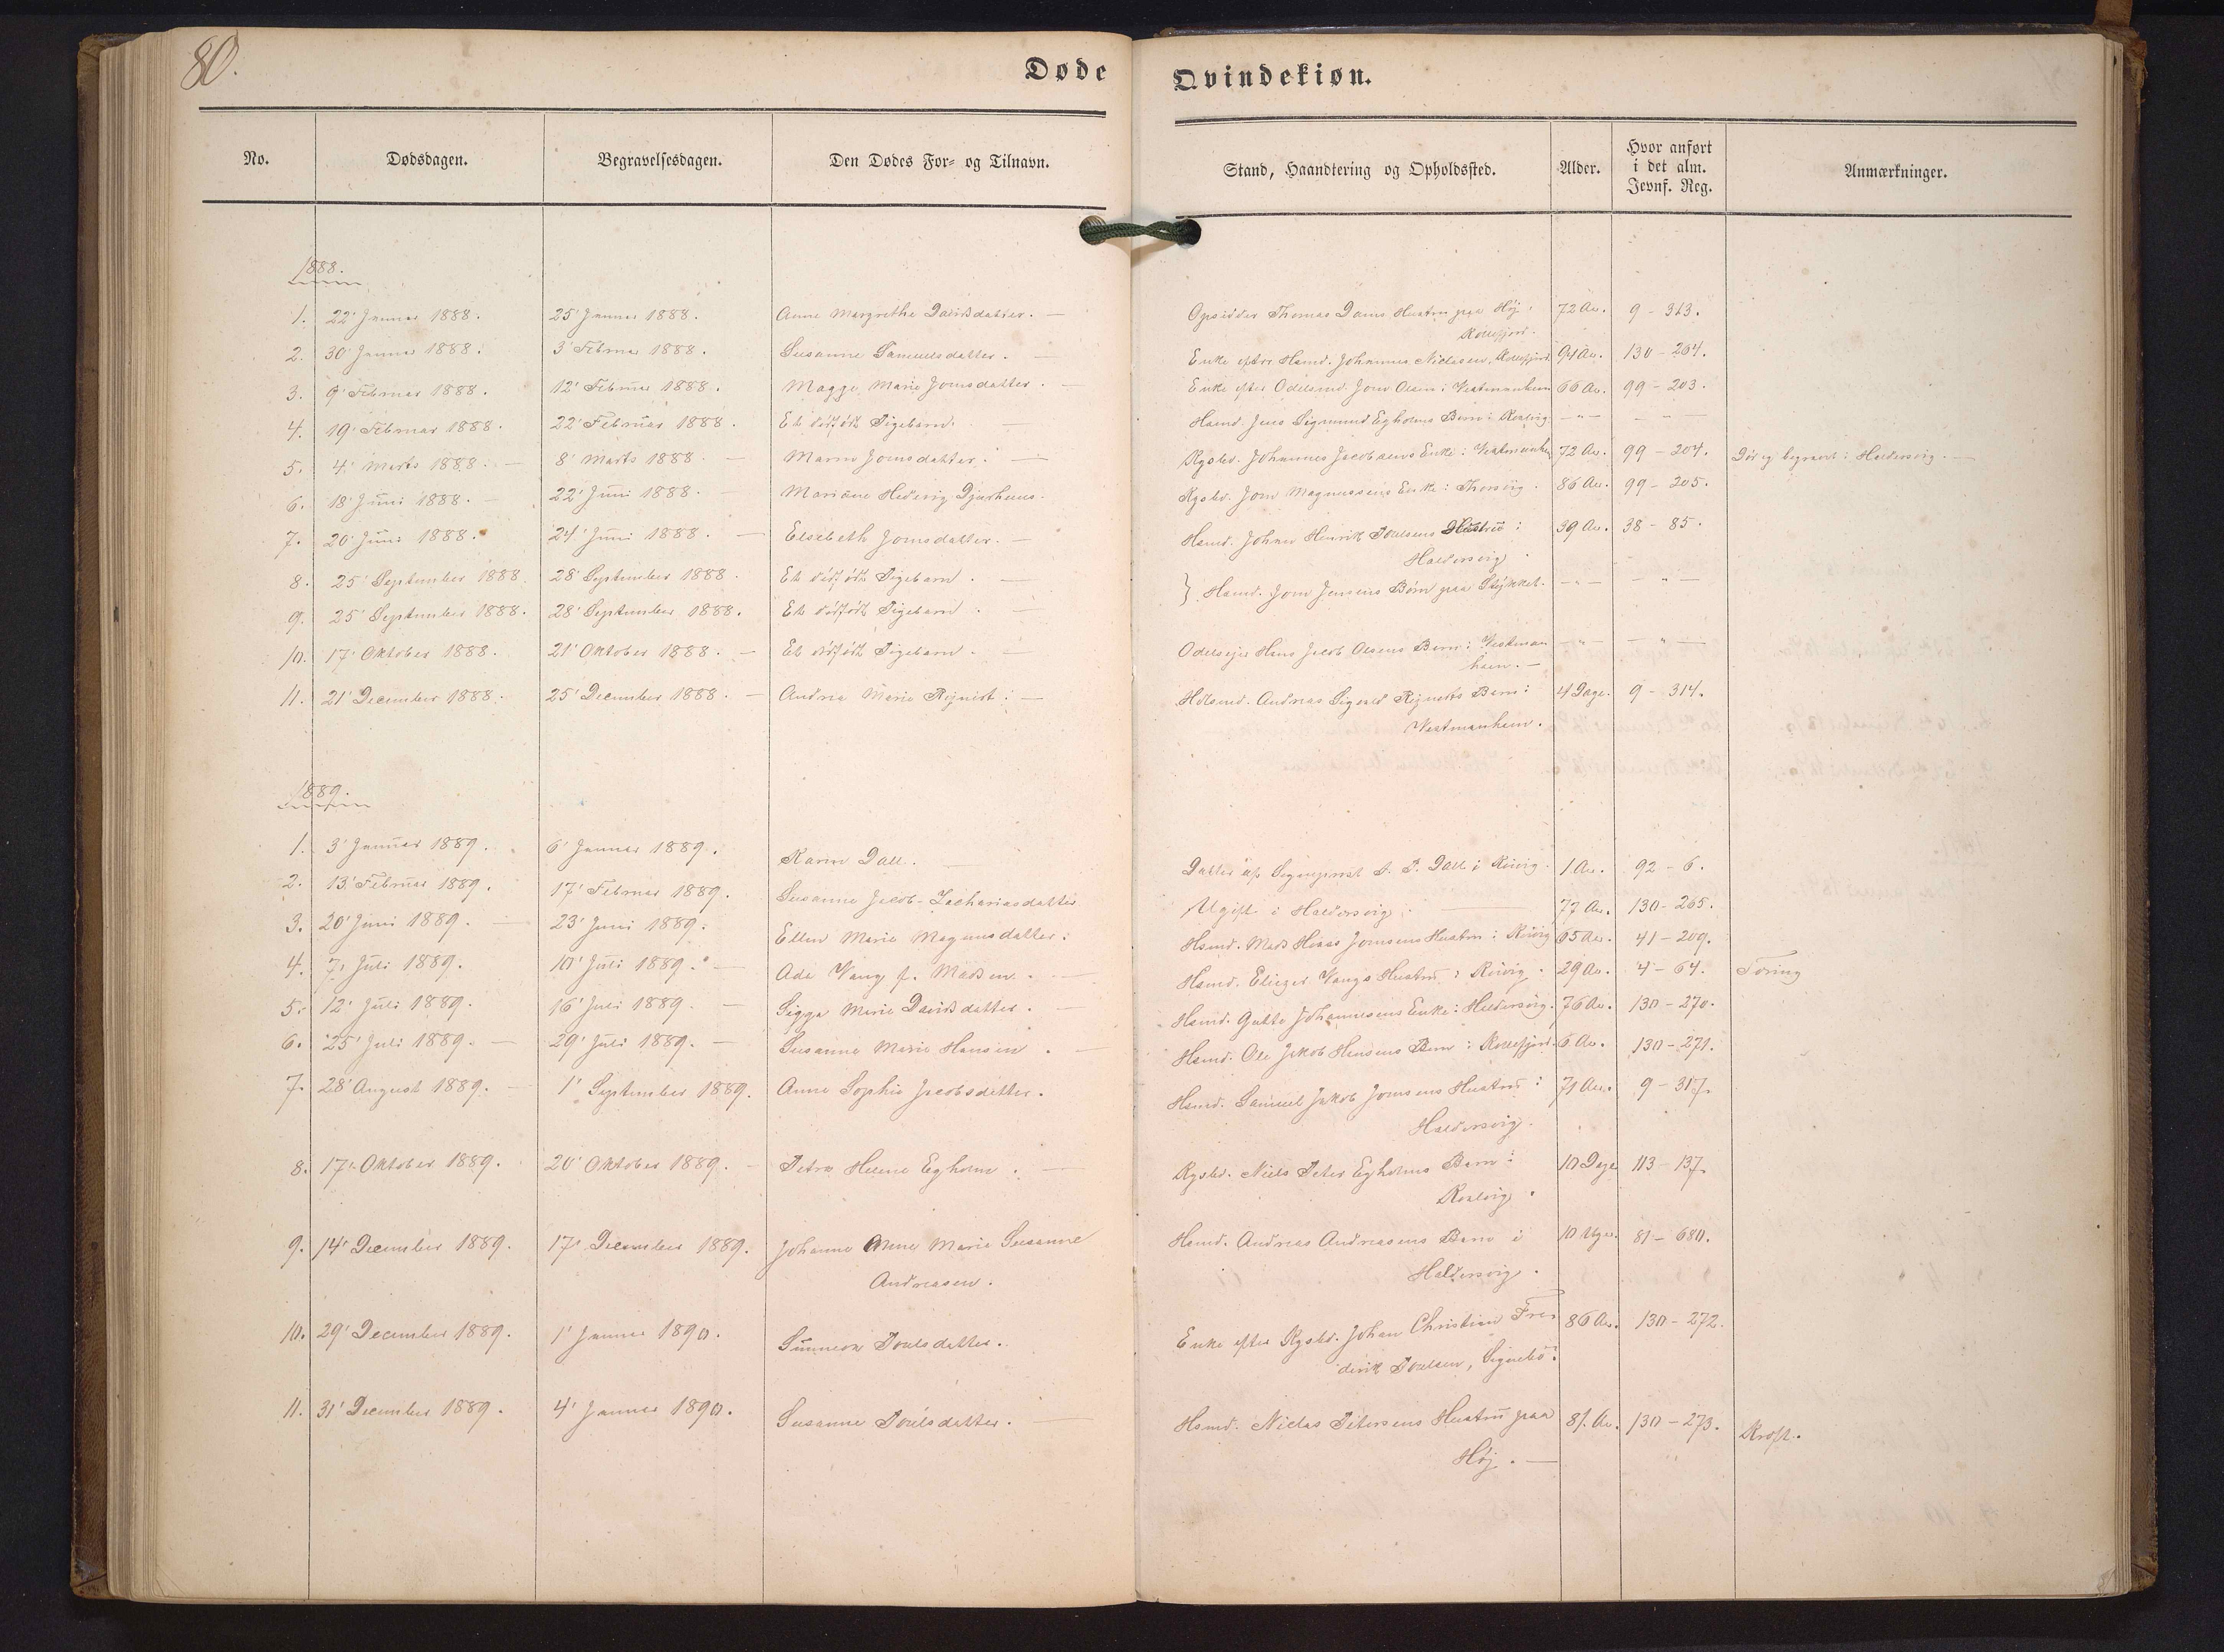 80.
Døde
Qvindekiøn.
No.
Dødsdagen.
Begravelsesdagen.
Den Dødes For- og Tilnavn.
Stand, Haandtering og Opholdssted.
Alder.
Hvor anført
i det alm.
Jevnf. Reg.
Anmærkninger.
1888.
1. 22' Januar 1888. 25' Januar 1888. Anne Margrethe Davidsdatter. — Opsidder Thomas Dams Hustru paa Høj i 72 Aar. 9 - 313.
Kollefjord.
2. 30' Januar 1888. 3' Februar 1888. Susanne Samuelsdatter. — Enke efter Hsmd. Johannes Niclasen, Kollefjord. 94 Aar. 130 - 264.
3. 9' Februar 1888. 12' Februar 1888. Magge Marie Joensdatter. — Enke efter Odelsmd. Joen Olsen i Vestmanhavn 66 Aar. 99 - 203.
4. 19' Februar 1888. 22' Februar 1888. Et dødfødt Pigebarn. — Hsmd. Jens Sigmund Egholms Barn i Kvalvig. — " — — " —
5. 4' Marts 1888. — 8' Marts 1888. — Maren Joensdatter. — Kgsbd. Johannes Jacobsens Enke i Vestmanhavn 72 Aar. 99 - 204. Død og begravet i Haldersvig. —
6. 18' Juni 1888. — 22' Juni 1888. — Mariane Hedevig Djurhuus. Kgsbd. Joen Magnussens Enke i Thorsvig. 86 Aar. 99 - 205.
7. 20' Juni 1888. 24' Juni 1888. — Elsebeth Joensdatter. — Hsmd. Johan Henrik Poulsens Hustru i 39 Aar. 38 - 85.
Haldersvig.
8. 25' September 1888. 28' September 1888. Et dødfødt Pigebarn. — } Hsmd. Joen Jensens Børn paa Stykket. — " — — " —
9. 25' September 1888. 28' September 1888. Et dødfødt Pigebarn. —
10. 17' Oktober 1888. 21' Oktober 1888. — Et dødfødt Pigebarn. — Odelsejer Hans Jacob Olsens Barn i Vestman — " — — " —
havn. —
11. 21' December 1888. 25' December 1888. — Andrea Marie Rejnert. — Hdlsmd. Andreas Sigvald Rejnerts Barn i 4 Dage. 9 - 314.
Vestmanhavn.
1889.
1. 3' Januar 1889. 6' Januar 1889. Karin Dall. — Datter af Sognepræst Dall i Kvivig. 1 Aar. 92 - 6.
2. 13' Februar 1889. 17' Februar 1889. Susanne Jacob-Zachariasdatter Ugift i Haldersvig. — 77 Aar. 130 - 265.
3. 20' Juni 1889. — 23' Juni 1889. Ellen Marie Magnusdatter. Hsmd. Mads Joensens Hustru i Kvivig 65 Aar. 41 - 209.
4. 7' Juli 1889. 10' Juli 1889. — Ada Vang f. Madsen. — Hsmd. Eliezer Vangs Hustru i Kvivig. 29 Aar. 4 - 64. Tæring
5. 12' Juli 1889. 16' Juli 1889. — Sigga Marie Davidsdatter. — Hsmd. Gutte Johannesens Enke i Haldersvig. 76 Aar. 130 - 270.
6. 25' Juli 1889. — 29' Juli 1889. — Susanne Marie Hansen. — Hsmd. Ole Jakob Hansens Barn i Kollefjord. 6 Aar. 130 - 271.
7. 28' August 1889. — 1' September 1889. Anne Sophie Jacobsdatter. Hsmd. Samuel Jakob Joensens Hustru i 71 Aar. 9 - 317.
Haldersvig.
8. 17' Oktober 1889. 20' Oktober 1889. — Petra Helene Egholm. — Kgsbd. Niels Peter Egholms Barn i 10 Dage 113 - 137.
Kvalvig.
9. 14' December 1889. 17' December 1889. Johanne Anne Marie Susanne Hsmd. Andreas Andreasens Barn i 10 Uger. 81 - 680.
Andreasen. Haldersvig.
10. 29' December 1889. 1' Januar 1890. Sunneva Poulsdatter. Enke efter Kgsbd. Johan Christian Fre- 86 Aar. 130 - 272.
derik Poulsen, Signebø.
11. 31' December 1889. 4' Januar 1890. Susanne Poulsdatter. — Hsmd. Niclas Petersens Hustru paa 81. Aar. 130 - 273. Kræft.
Høj. —